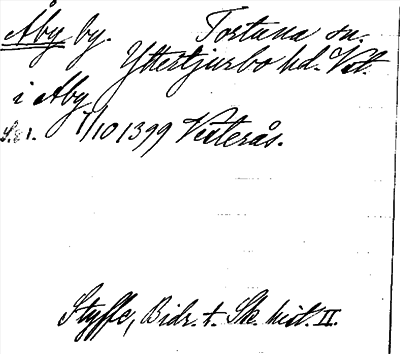 Åby by. Tortuna sn.
Yttertjurbo hd. Vstl.
i Aby
S. 81. 1/10 1399 Vesterås.
Styffe, Bidr. t. Sk. hist. II.